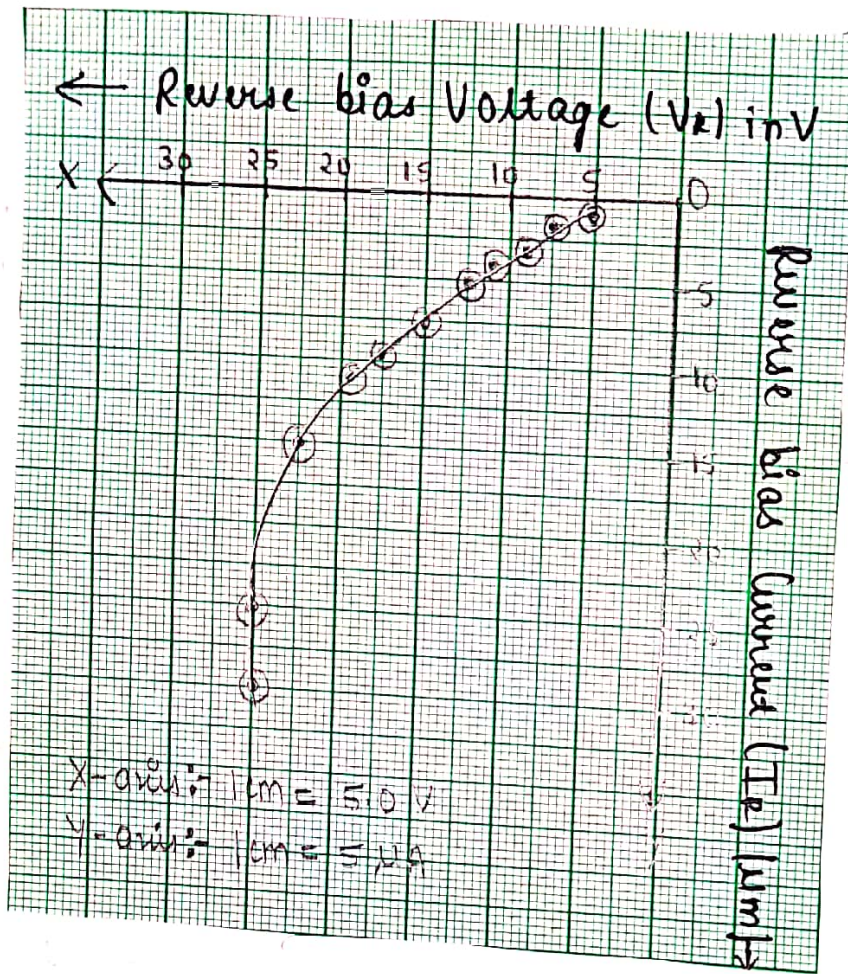 ← Reverse bias Voltage (VR) in V
X 30 25 20 15 10 5 0
5
10
15
20
25
Reverse bias Current (IR) (μm) →
X-axis:- 1cm = 5.0 V
Y-axis:- 1cm = 5 μA